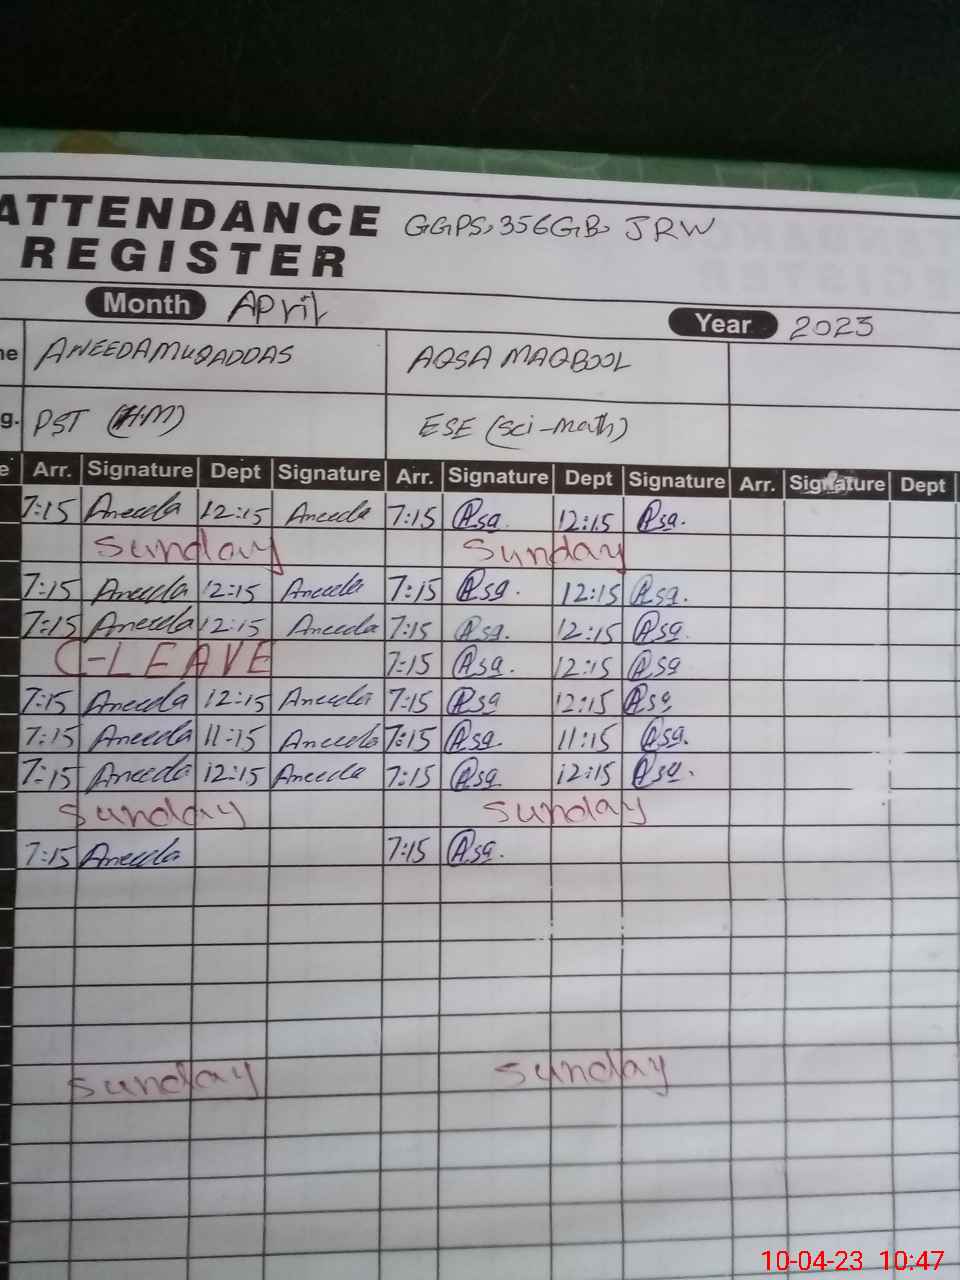 ATTENDANCE GGPS, 356GB, JRW
REGISTER
Month April Year 2023
ANEEDAMUQADDAS AQSA MAQBOOL
PST (H.M) ESE (Sci-Math)
Arr. Signature Dept Signature Arr. Signature Dept Signature Arr. Signature Dept
7:15 Aneeda 12:15 Aneeda 7:15 Aqsa. 12:15 Aqsa.
Sunday Sunday
7:15 Aneeda 12:15 Aneeda 7:15 Aqsa. 12:15 Aqsa.
7:15 Aneeda 12:15 Aneeda 7:15 Aqsa. 12:15 Aqsa.
C-LEAVE 7:15 Aqsa. 12:15 Aqsa
7:15 Aneeda 12:15 Aneeda 7:15 Aqsa 12:15 Aqsa
7:15 Aneeda 11:15 Aneeda 7:15 Aqsa. 11:15 Aqsa.
7:15 Aneeda 12:15 Aneeda 7:15 Aqsa. 12:15 Aqsa.
Sunday Sunday
7:15 Aneeda 7:15 Aqsa.
Sunday Sunday
10-04-23 10:47